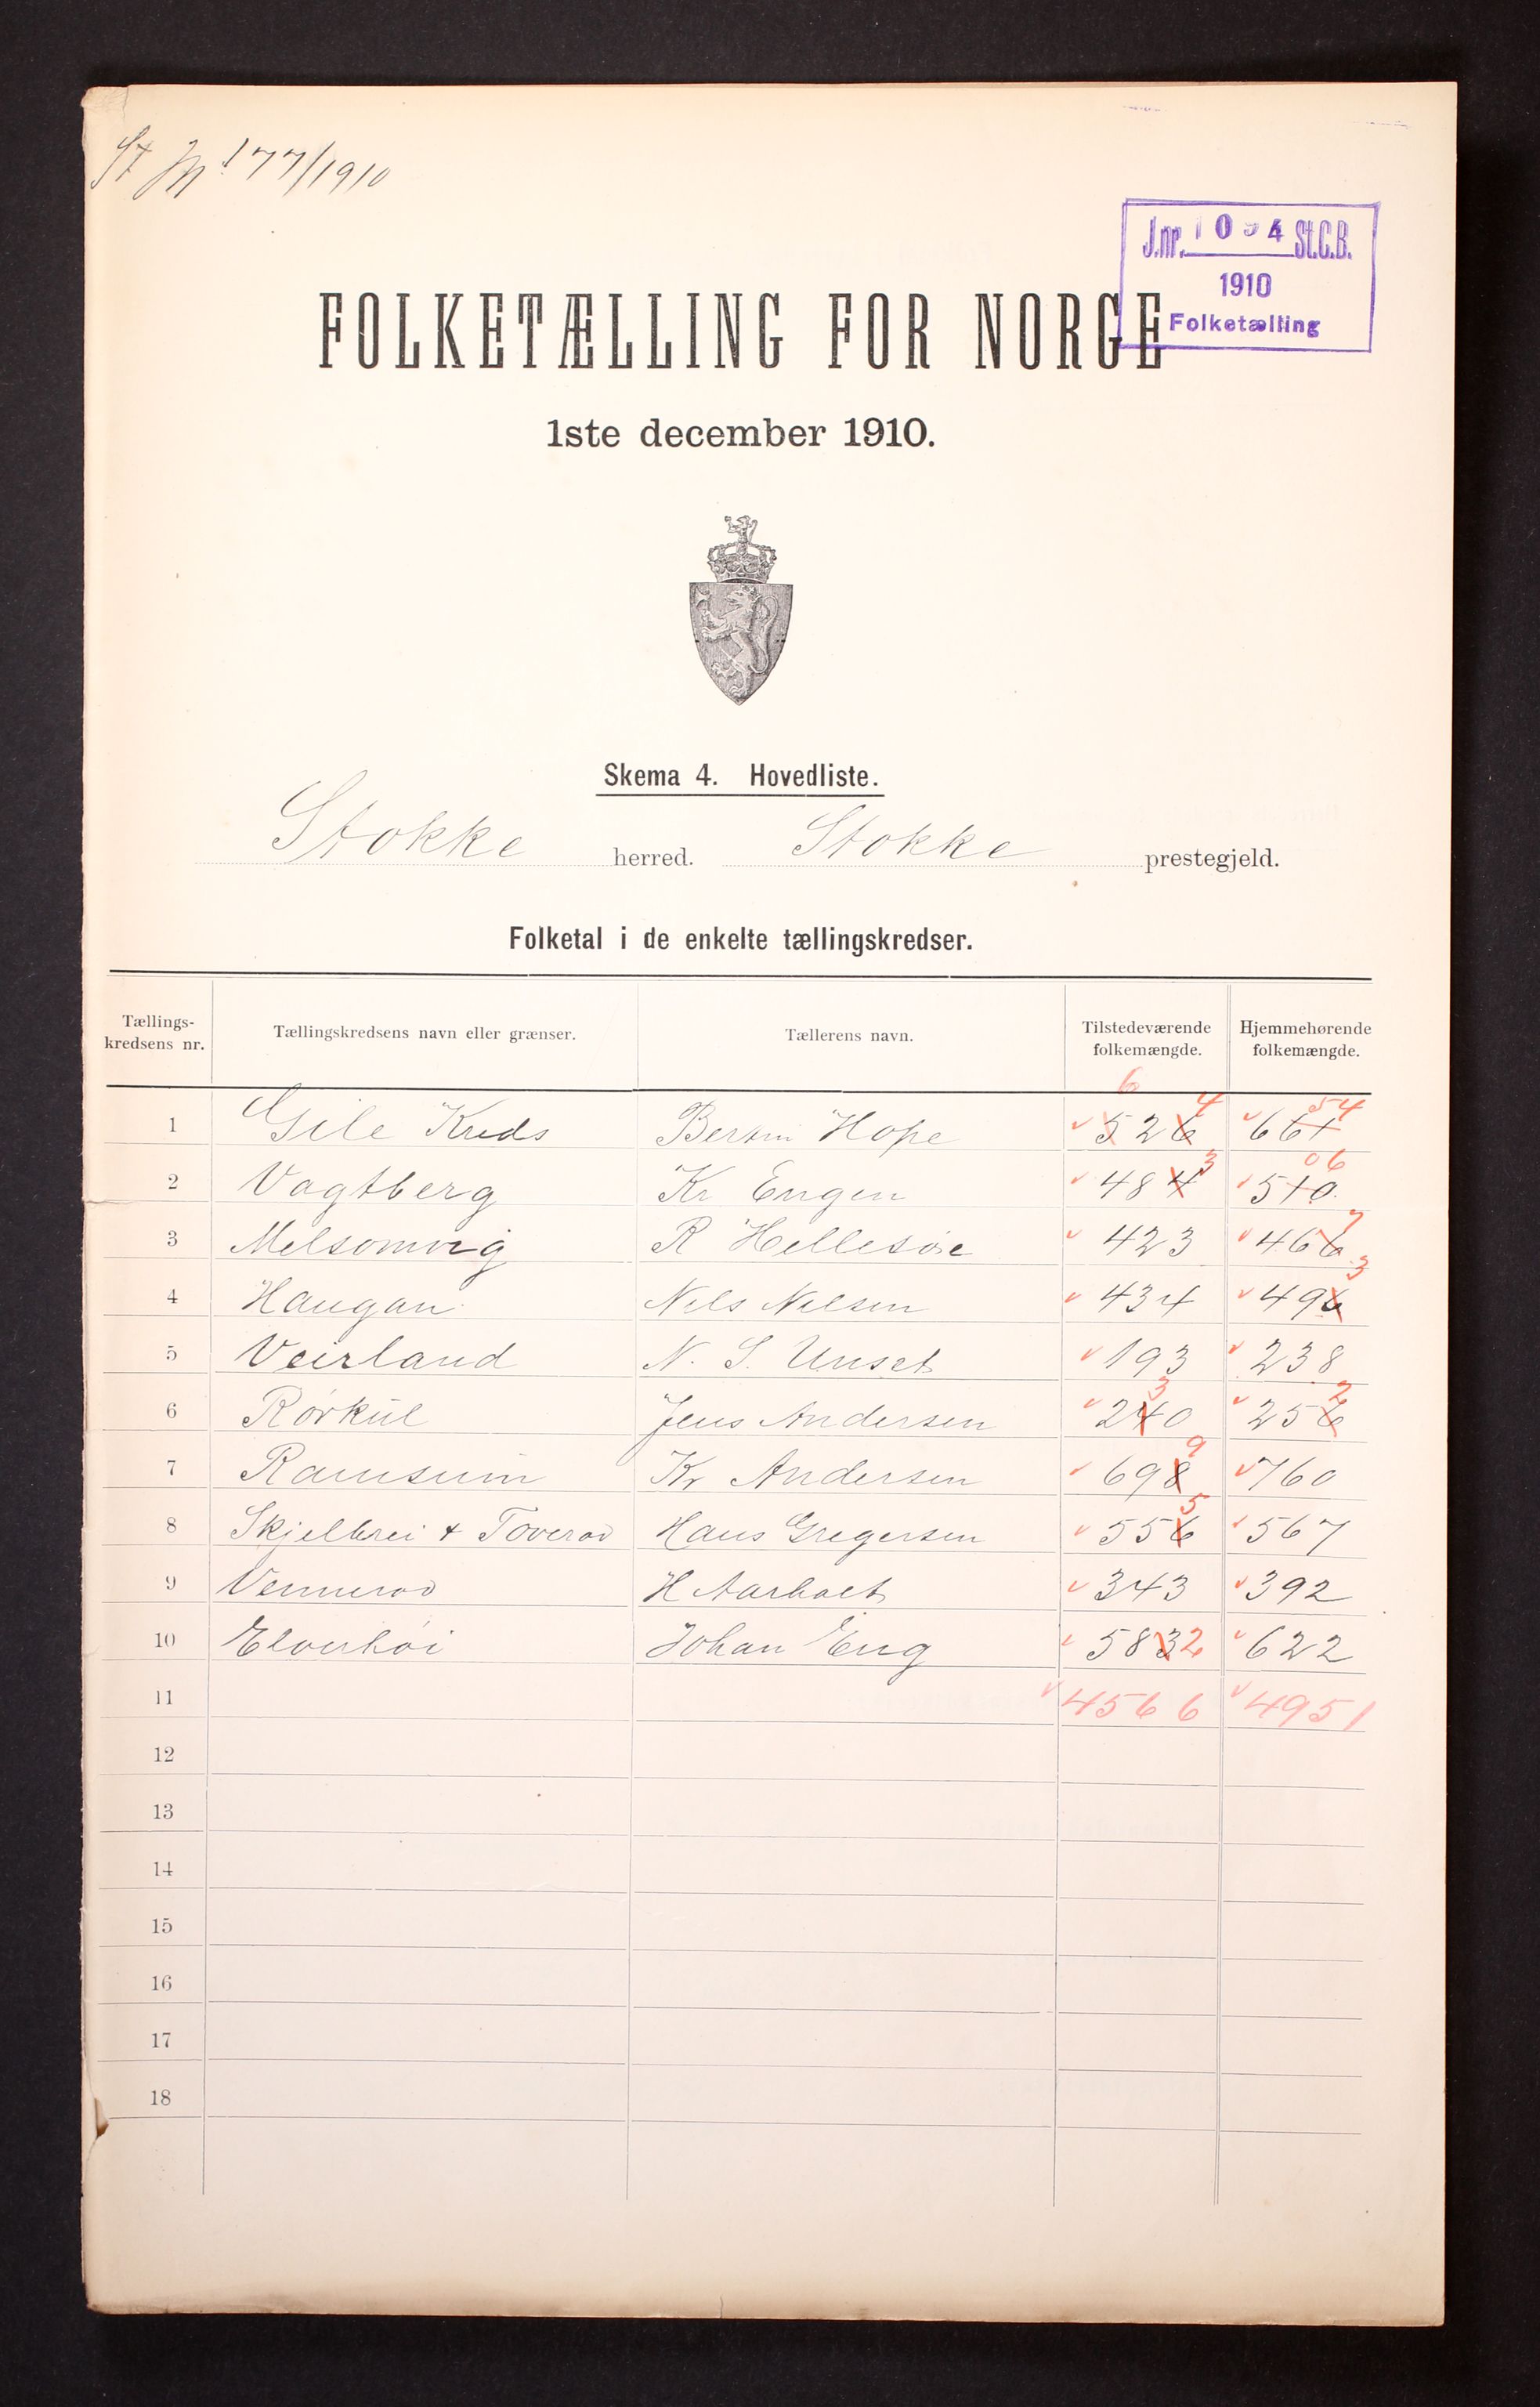 St M 177/1910
J.nr. 1094 St.C.B.
1910
Folketælling
FOLKETÆLLING FOR NORGE
1ste december 1910.
Skema 4. Hovedliste.
Stokke herred. Stokke prestegjeld.
Folketal i de enkelte tællingskredser.
Tællings-kredsens nr. Tællingskredsens navn eller grænser. Tællerens navn. Tilstedeværende folkemængde. Hjemmehørende folkemængde.
6 4 54
1 Gile Kreds Hope 526 661
3 06
2 Vagtberg Kr Engen 484 510
7
3 Melsomvig R Hellesøe 423 466
3
4 Haugan Nils Nilsen 434 496
5 Veirland N. S. Unset 193 238
3 2
6 Rørkil Jens Andersen 240 256
9
7 Ramsum Kr Andersen 698 760
5
8 Skjelbrei + Toverød Hans Gregersen 556 567
9 Vennerød H Aarholt 343 392
10 Elverhøi Johan Eng 5832 622
11 4566 4951
12
13
14
15
16
17
18